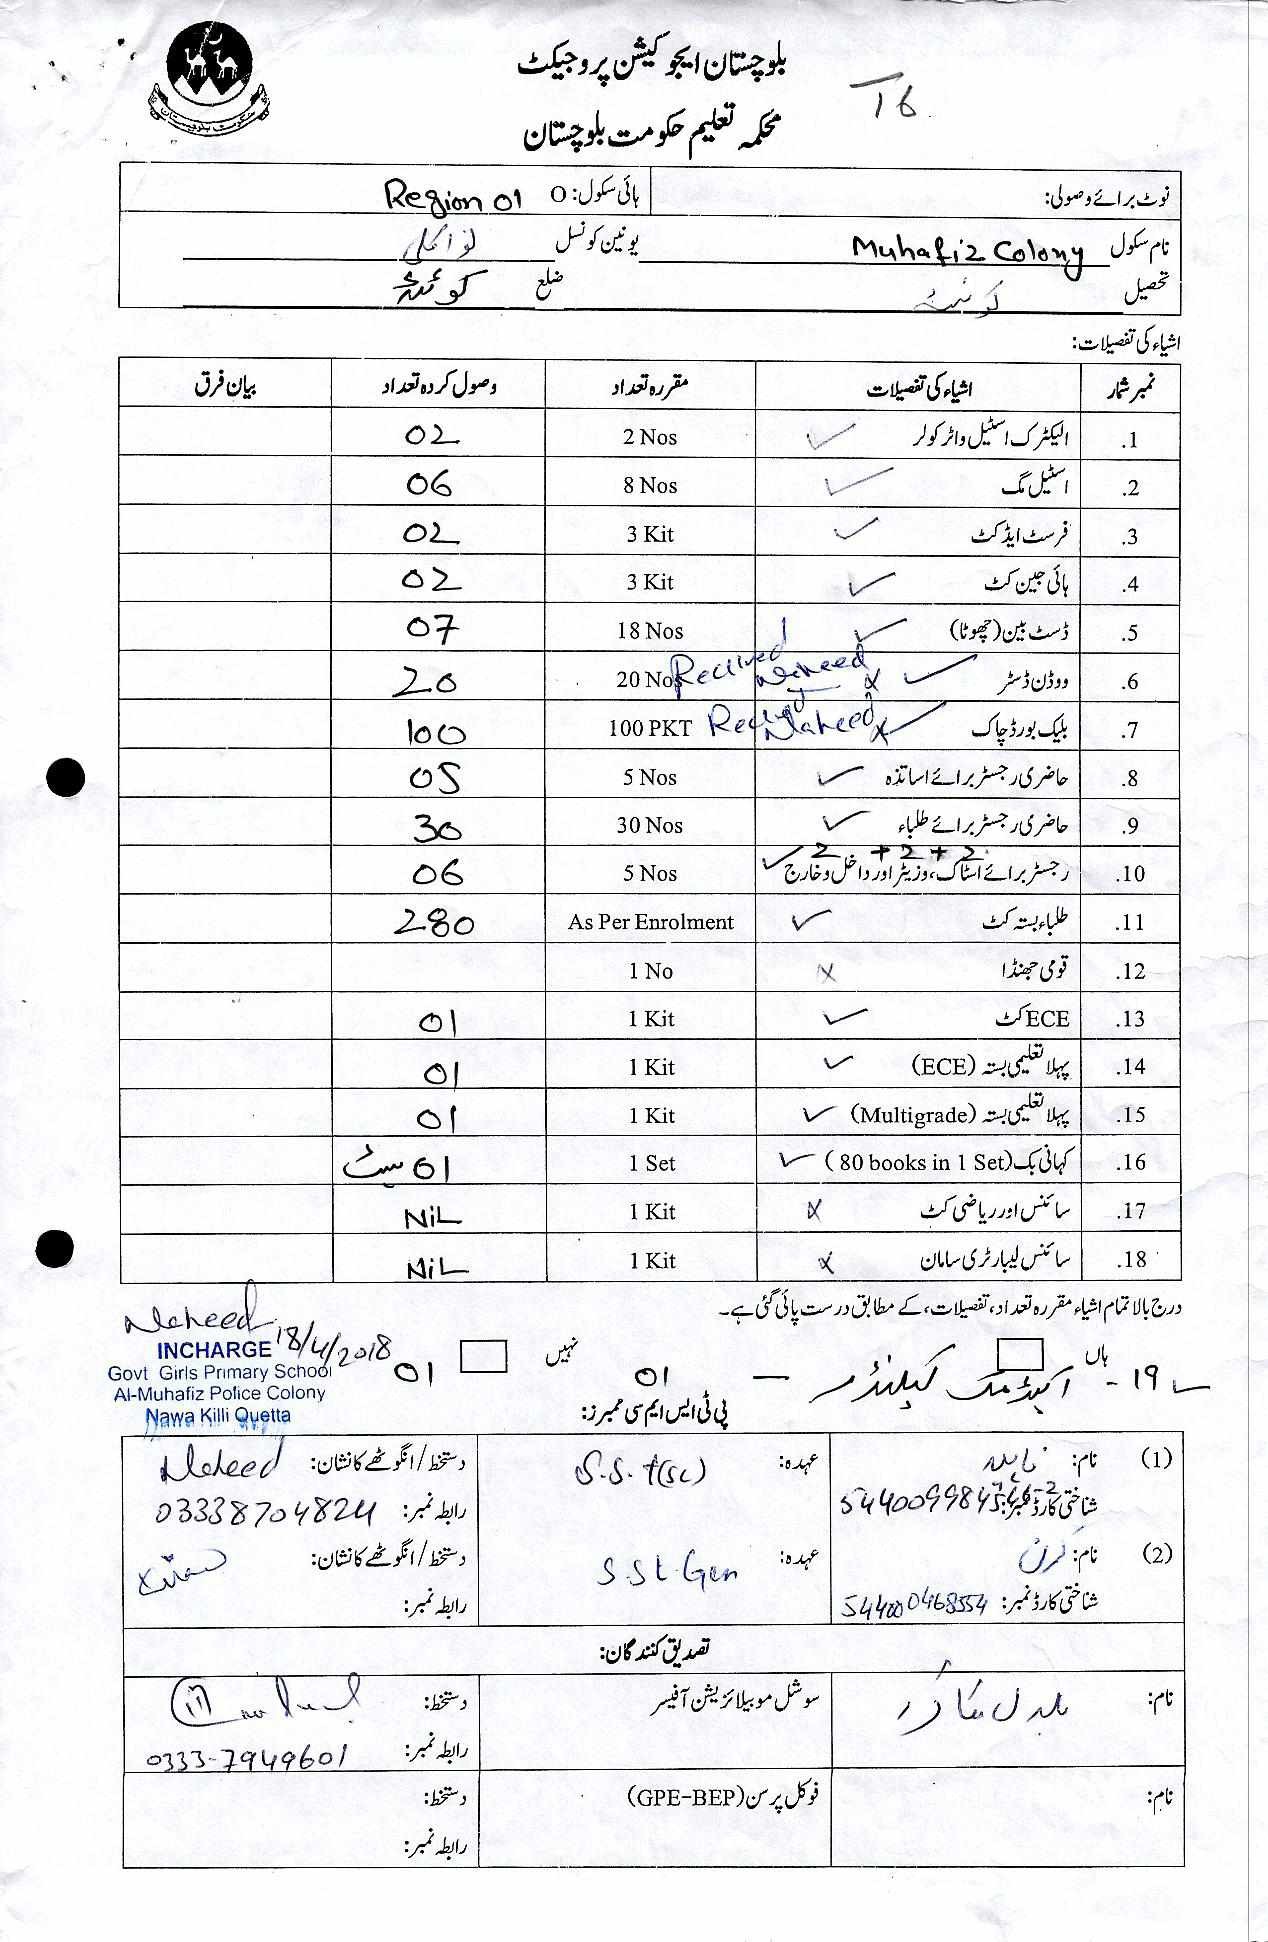 بلوچستان ایجوکیشن پروجیکٹ
T6
محکمہ تعلیم حکومت بلوچستان
حکومت بلوچستان
نوٹ برائے وصولی: ہائی سکول: O Region 01
نام سکول Muhafiz Colony یونین کونسل نواکلی
تحصیل کوئٹہ ضلع کوئٹہ
اشیاء کی تفصیلات:
نمبر شمار اشیاء کی تفصیلات مقررہ تعداد وصول کردہ تعداد بیان فرق
1. الیکٹرک اسٹیل واٹر کولر ✓ 2 Nos 02
2. اسٹیل مگ ✓ 8 Nos 06
3. فرسٹ ایڈ کٹ ✓ 3 Kit 02
4. ہائی جین کٹ ✓ 3 Kit 02
5. ڈسٹ بین (چھوٹا) ✓ 18 Nos 07
6. ووڈن ڈسٹر ✓ x Received Naheed 20 Nos 20
7. بلیک بورڈ چاک ✓ x Naheed 100 PKT 100
8. حاضری رجسٹر برائے اساتذہ ✓ 5 Nos 05
9. حاضری رجسٹر برائے طلباء ✓ 30 Nos 30
2 + 2 + 2
10. رجسٹر برائے اسٹاک، وزیٹر اور داخل و خارج ✓ 5 Nos 06
11. طلباء بستہ کٹ ✓ As Per Enrolment 280
12. قومی جھنڈا x 1 No
13. ECE کٹ ✓ 1 Kit 01
14. پہلا تعلیمی بستہ (ECE) ✓ 1 Kit 01
15. پہلا تعلیمی بستہ (Multigrade) ✓ 1 Kit 01
16. کہانی بک (80 books in 1 Set) ✓ 1 Set 01 سیٹ
17. سائنس اور ریاضی کٹ x 1 Kit NiL
18. سائنس لیبارٹری سامان x 1 Kit NiL
درج بالا تمام اشیاء مقررہ تعداد، تفصیلات، کے مطابق درست پائی گئی ہے۔
Naheed
18/4/2018
INCHARGE
Govt Girls Primary School
Al-Muhafiz Police Colony
Nawa Killi Quetta
ہاں نہیں
✓ 19- اکیڈمک کیلنڈر — 01 01
پی ٹی ایس ایم سی ممبرز:
(1) نام: ناہید عہدہ: S.S.t(sc) دستخط/انگوٹھے کا نشان: Naheed
شناختی کارڈ نمبر: رابطہ نمبر: 03338704824
(2) نام: کرن عہدہ: S.St.Gen دستخط/انگوٹھے کا نشان:
شناختی کارڈ نمبر: 544000468554 رابطہ نمبر:
تصدیق کنندگان:
نام: سوشل موبیلائزیشن آفیسر دستخط:
رابطہ نمبر: 0333-7949601
نام: فوکل پرسن (GPE-BEP) دستخط:
رابطہ نمبر: